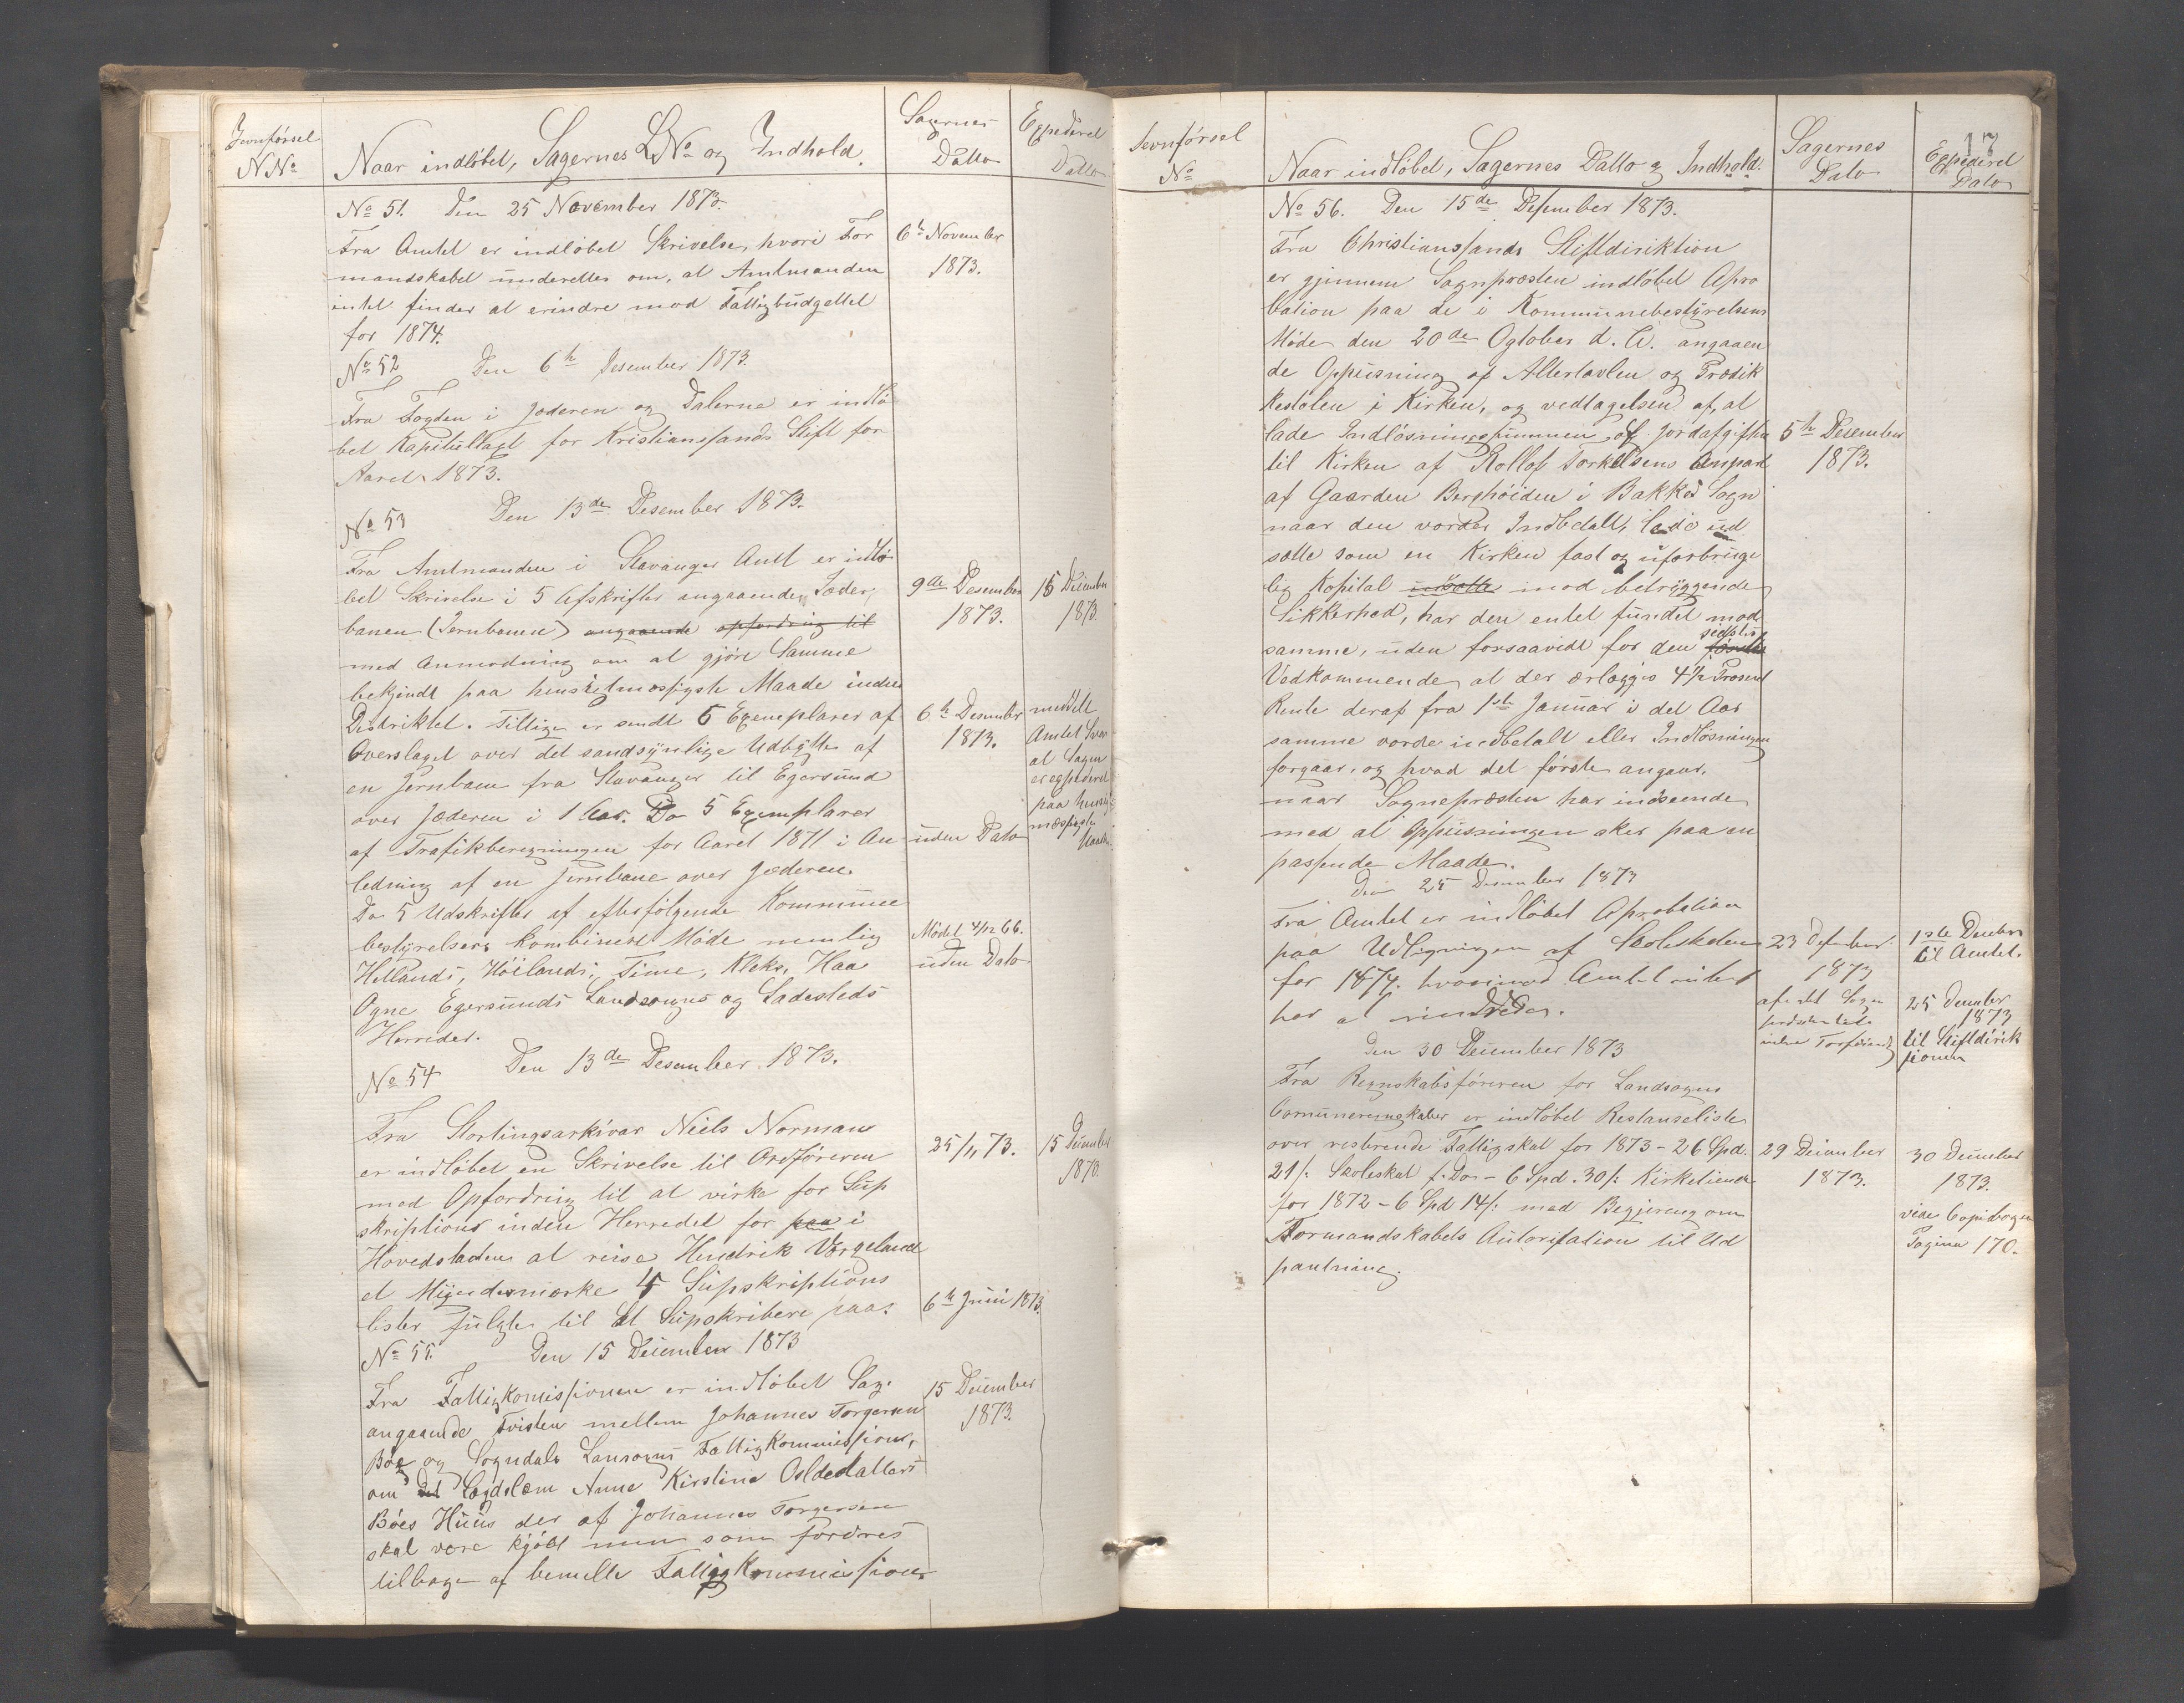 Jevnførsel
N No
Naar indløbet, Sagernes LNo og Indhold.
Sagernes
Datto
Expederet
Datto
No 51. Den 25 November 1873.
Fra Amtet er indløbet Skrivelse, hvori For
mandskabet underettes om, at Amtmanden
intet finder at erindre mod Fattigbudgettet
for 1874.
6te November
1873.
No 52 Den 6te Desember 1873.
Fra Fogden i Jæderen og Dalerne er indlø
bet Kapitultagt for Kristianssands Stift for
Aaret 1873.
No 53 Den 13de Desember 1873.
Fra Amtmanden i Stavanger Amt er indlø
bet Skrivelse i 5 Afskrifter angaaende Jæder,
banen (Jernbanen) angaaende opfordring til
med Anmodning om at gjøre Samme
bekjendt paa hensigtmæssigste Maade inden
Distriktet. Tilliger er sendt 5 Exemplarer af
Overslaget over det sandsynlige Udbytte af
en Jernbane fra Stavanger til Egersund
over Jæderen i 1 Aar. Do 5 Exemplarer
af Trafikberegningen for Aaret 1871 i An
ledning af en Jernbane over Jæderen.
Do 5 Udskrifter af efterfølgende Kommune
bestyrelsers kombineret Møde nemlig
Hetlands, Høilands, Time, Kleks, Haa
Ogne Egersunds Landsogns og Ladesteds
Herreder.
9de Desember
1873.
15 Desember
1873.
6te Desember
1873.
meddelt
Amtet Svar
at Sagen
er expederet
paa hensigt
mæssigste
Maade.
uden Dato
Mødet 4/12 66.
uden Dato
No 54 Den 13de Desember 1873.
Fra Stortingsarkivar Niels Norman
er indløbet en Skrivelse til Ordføreren
med Opfordring til at virke for Sup
skriptions inden Herredet for paa i
Hovedstaden at reise Hendrik Vergeland
et Mindesmærke 4 Supskriptions
lister fulgte til at Supskribere paa.
25/11 73.
15 Desember
1873.
6te Juni 1873.
No 55. Den 15 Desember 1873
Fra Fattigkomissionen er indløbet Sag.
angaaende Tvisten mellem Johannes Torgersen
Bøe og Sogndals Lansogns Fattigkommission,
om det Lægdslem Anne Kirstine Osldesdatters
Bøes Huus der af Johannes Torgersen
skal være kjøbt men som fordres
tilbage af bemelte Fattigkommission
15 Desember
1873.
17
Jevnførsel
No
Naar indløbet, Sagernes Datto og Indhold.
Sagernes
Dato
Expederet
Dato
No 56. Den 15de Desember 1873.
Fra Christianssands Stiftdiriktion
er gjennem Sognpræsten indløbet Apro
bation paa de i Kommunebestyrelsens
Møde den 20de Ogtober d. A. angaaen
de Oppusning af Altertavlen og Prædik
kestolen i Kirken, og vedtagelsen af, at
lade Indløsningssummen af Jordafgiften
til Kirken af Rollof Torkelsens Anpart
af Gaarden Berghøiden i Bakke Sogn
naar den vorder Indbetalt, lade ud
sætte som en Kirken fast og uforbrüge
lig Kapital udsatte mod betryggende
Sikkerhed, har den entet fundet mod
samme, uden forsaavidt for den første sidste
Vedkommende at der erlægges 4½ Prosent
Rente deraf fra 1ste Januar i det Aar
samme vorde indbetalt eller Indløsningen
forgaar, og hvad det første angaar,
naar Sognepræsten har indseende
med at Oppusningen sker paa en
passende Maade.
5te Desember
1873.
Den 25 Desember 1873
Fra Amtet er indløbet Aprobation
paa Udligningen af Skoleskaden
for 1874. hvorimod Amtet intet
har at erindre.
23 Desember
1873
1ste Desember
til Amtet.
25 Desember
1873
til Stiftdirik
sionen
Den 30 Desember 1873
Fra Regnskabsføreren for Landsogns
Comuneregnskaber er indløbet Restanseliste
over resterende Fattigskat for 1873 - 26 Spd.
21/: Skoleskat f. Do - 6 Spd. 30/: Kirketiende
for 1872 - 6 Spd 14/: med Begjering om
Formandskabets Autorisation til Ud
pantning.
29 Desember
1873.
30 Desember
1873.
vide Copibogen
Pagina 170.